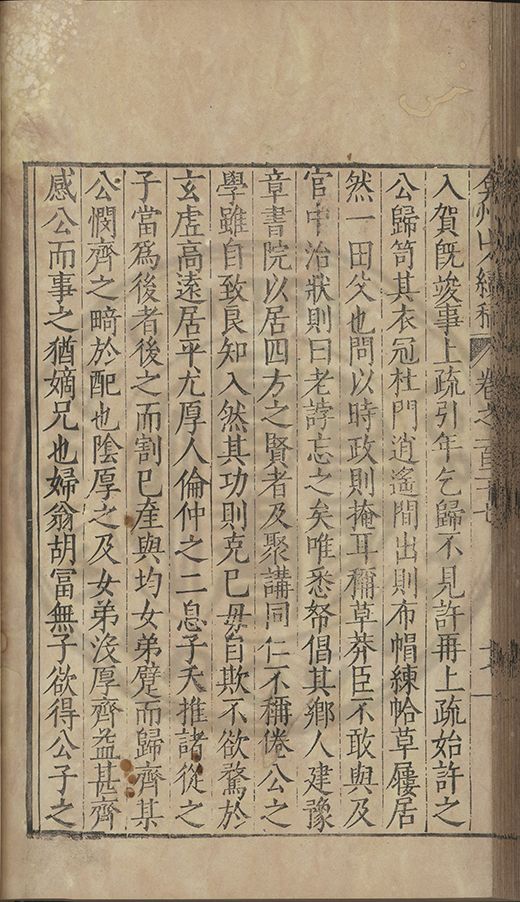 弇州山人續稿 卷之一百三十七
入賀旣竣事上疏引年乞歸不見許再上疏始許之
公歸笥其衣冠杜門逍遙間出則布帽練帢草屨居
然一田父也問以時政則掩耳稱草莽臣不敢與及
官中治狀則曰老誖忘之矣唯悉帑倡其鄉人建豫
章書院以居四方之賢者及聚講同仁不稱倦公之
學雖自致良知入然其功則克巳毋自欺不欲騖於
玄虛高遠居平尤厚人倫仲之二息子夭推諸從之
子當爲後者後之而割巳產與均女弟躄而歸齊某
公憫齊之畸於配也陰厚之及女弟沒厚齊益甚齊
感公而事之猶嫡兄也婦翁胡冨無子欲得公子之